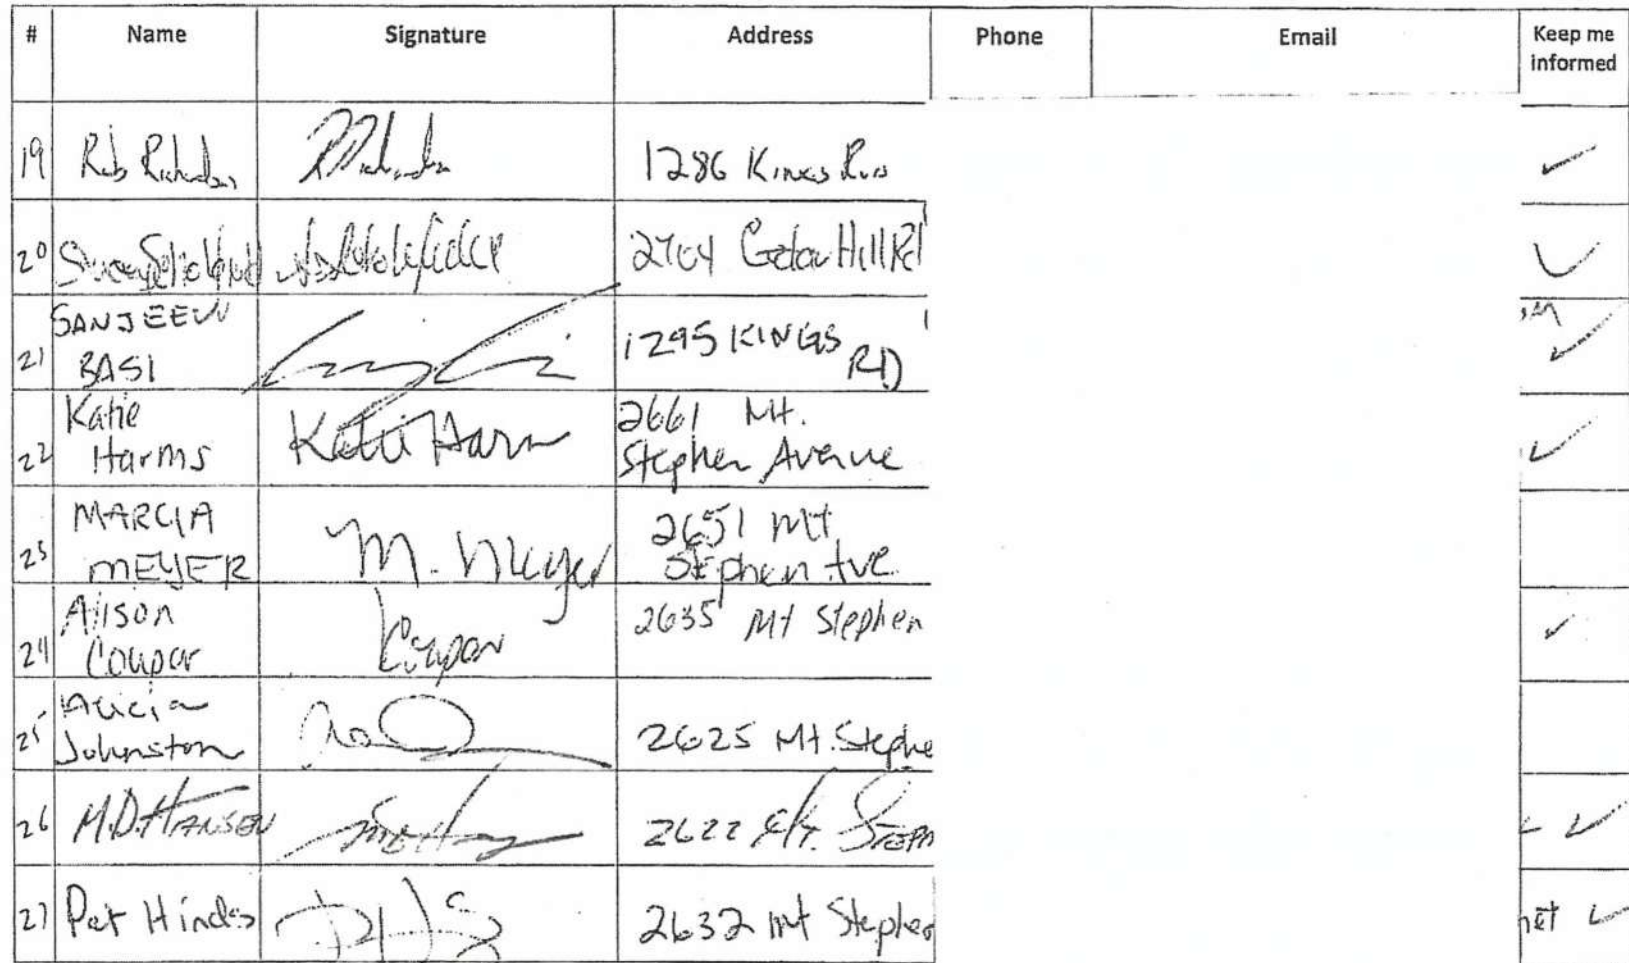 # Name Signature Address Phone Email Keep me informed
19 Rob 1286 Kings Rd
20 2764 Cedar Hill Rd
21 SANJEEV BASI 1295 KINGS RD
22 Katie Harms Katie Harm 2661 Mt. Stephen Avenue
23 MARCIA MEYER M. Meyer 2651 Mt Stephen Ave
24 Alison Coupar Coupar 2635 Mt Stephen
25 Alicia Johnston 2625 Mt. Stephe
26 M.D. HANSEN 2622 Mt. STEPH
27 Pat Hinds 2632 Mt Stephen
net